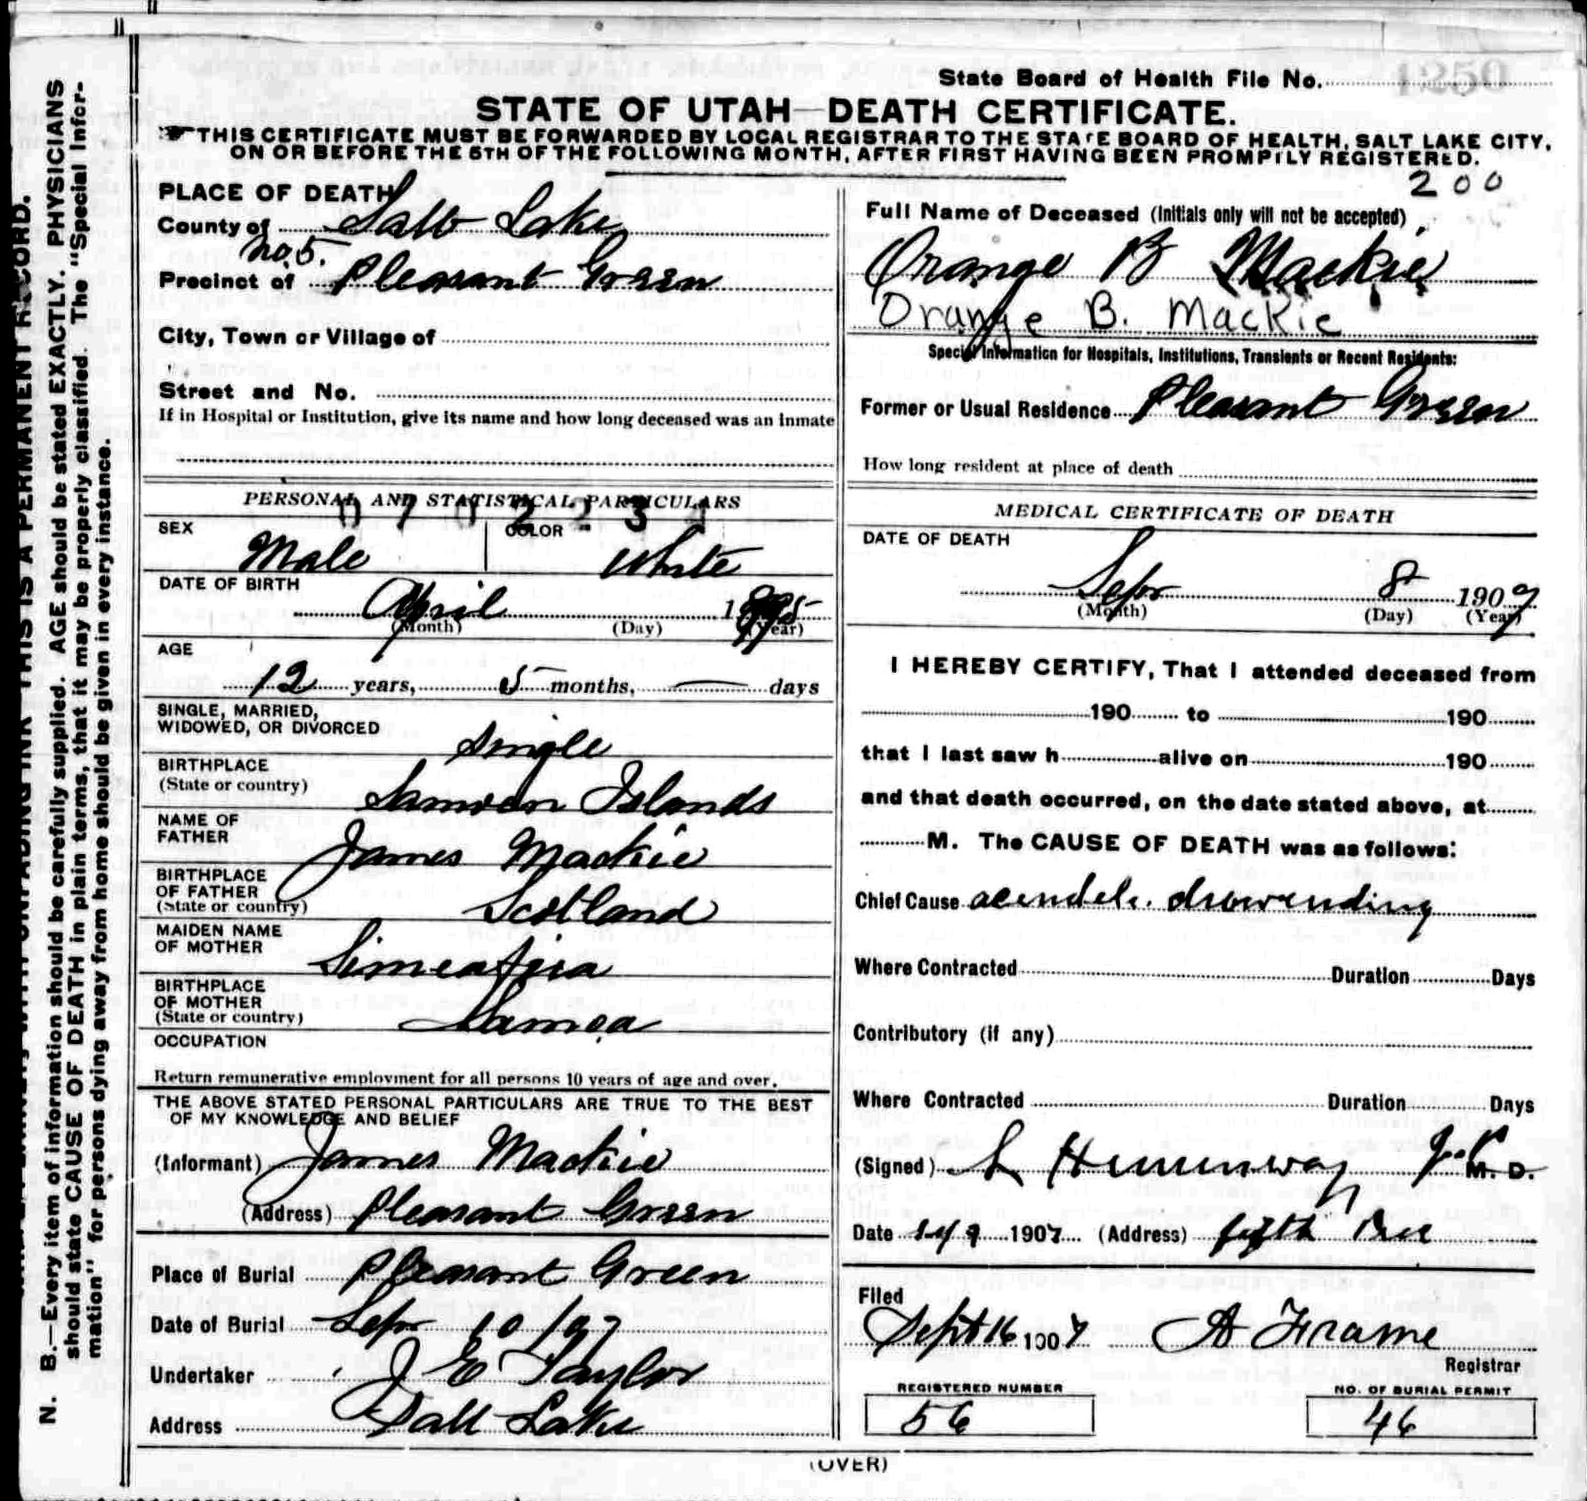 State Board of Health File No. 1250
STATE OF UTAH—DEATH CERTIFICATE.
THIS CERTIFICATE MUST BE FORWARDED BY LOCAL REGISTRAR TO THE STATE BOARD OF HEALTH, SALT LAKE CITY,
ON OR BEFORE THE 5TH OF THE FOLLOWING MONTH, AFTER FIRST HAVING BEEN PROMPTLY REGISTERED.
200
PLACE OF DEATH
County of Salt Lake
No 5.
Precinct of Pleasant Green
City, Town or Village of
Street and No.
If in Hospital or Institution, give its name and how long deceased was an inmate
PERSONAL AND STATISTICAL PARTICULARS
SEX Male COLOR White
DATE OF BIRTH
April 1895
(Month) (Day) (Year)
AGE
12 years, 5 months, — days
SINGLE, MARRIED,
WIDOWED, OR DIVORCED Single
BIRTHPLACE
(State or country) Samoan Islands
NAME OF
FATHER James Mackie
BIRTHPLACE
OF FATHER
(State or country) Scotland
MAIDEN NAME
OF MOTHER
BIRTHPLACE
OF MOTHER
(State or country) Samoa
OCCUPATION
Return remunerative employment for all persons 10 years of age and over.
THE ABOVE STATED PERSONAL PARTICULARS ARE TRUE TO THE BEST
OF MY KNOWLEDGE AND BELIEF
(Informant) James Mackie
(Address) Pleasant Green
Place of Burial Pleasant Green
Date of Burial Sep 10/97
Undertaker J E Taylor
Address Salt Lake
Full Name of Deceased (Initials only will not be accepted)
Orange B Mackie
Orange B. Mackie
Special Information for Hospitals, Institutions, Transients or Recent Residents:
Former or Usual Residence Pleasant Green
How long resident at place of death
MEDICAL CERTIFICATE OF DEATH
DATE OF DEATH
Sep 8 1907
(Month) (Day) (Year)
I HEREBY CERTIFY, That I attended deceased from
190 to 190
that I last saw h alive on 190
and that death occurred, on the date stated above, at
M. The CAUSE OF DEATH was as follows:
Chief Cause
Where Contracted Duration Days
Contributory (if any)
Where Contracted Duration Days
(Signed) Hemenway J.P. M. D.
Date 1907 (Address) fifth Prec
Filed
Sept 16 1907 A Frame
Registrar
REGISTERED NUMBER
56
NO. OF BURIAL PERMIT
46
(OVER)
N. B.—Every item of information should be carefully supplied. AGE should be stated EXACTLY. PHYSICIANS
should state CAUSE OF DEATH in plain terms, that it may be properly classified. The "Special Infor-
mation" for persons dying away from home should be given in every instance.
THIS IS A PERMANENT RECORD.